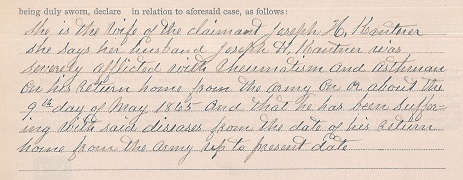 being duly sworn, declare in relation to aforesaid case, as follows:
She is the wife of the claimant Joseph H. Kautner
she says her husband Joseph H. Kautner was
severely afflicted with rheumatism and asthman
on his return home from the army on or about the
9th day of May 1865 and that he has been suffer-
ing with said diseases from the date of his return
home from the army up to present date